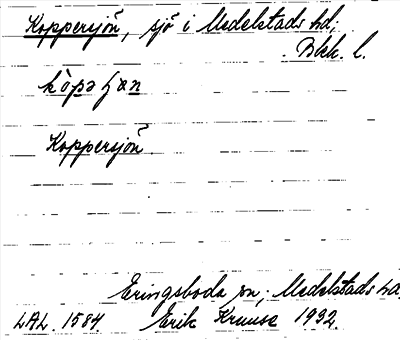 Koppersjön, sjö i Medelstads hd;
Bkk. l.
Koppersjön.
Eringsboda sn; Medelstads hd.
LAL. 1584. Erik Kruuse 1932.